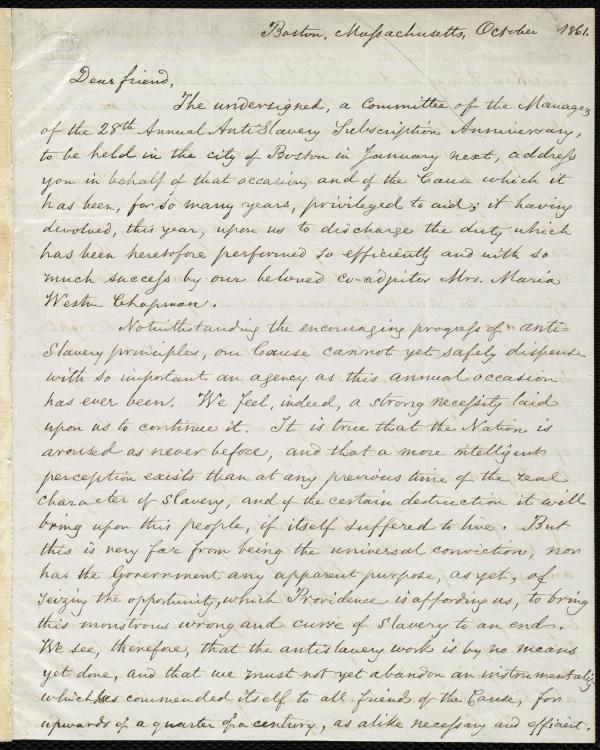 Boston, Massachusetts, October 1861.
Dear friend,
The undersigned, a Committee of the Managers
of the 28th Annual Anti Slavery Subscription Anniversary,
to be held in the city of Boston in January next, address
you in behalf of that occasion, and of the Cause which it
has been, for so many years, privileged to aid; it having
devolved, this year, upon us to discharge the duty which
has been heretofore performed so efficiently and with so
much success by our beloved co-adjutor Mrs. Maria
Weston Chapman.
Notwithstanding the encouraging progress of anti-
Slavery principles, our Cause cannot yet safely dispense
with so important an agency as this annual occasion
has ever been. We feel, indeed, a strong necessity laid
upon us to continue it. It is true that the Nation is
aroused as never before, and that a more intelligent
perception exists than at any previous time of the real
character of Slavery, and of the certain destruction it will
bring upon this people, if itself suffered to live. But
this is very far from being the universal conviction, nor
has the Government any apparent purpose, as yet, of
seizing the opportunity, which Providence is affording us, to bring
this monstrous wrong and curse of Slavery to an end.
We see, therefore, that the antislavery work is by no means
yet done, and that we must not yet abandon an instrumentality
which has commended itself to all friends of the Cause, for
upwards of a quarter of a century, as alike necessary and efficient.